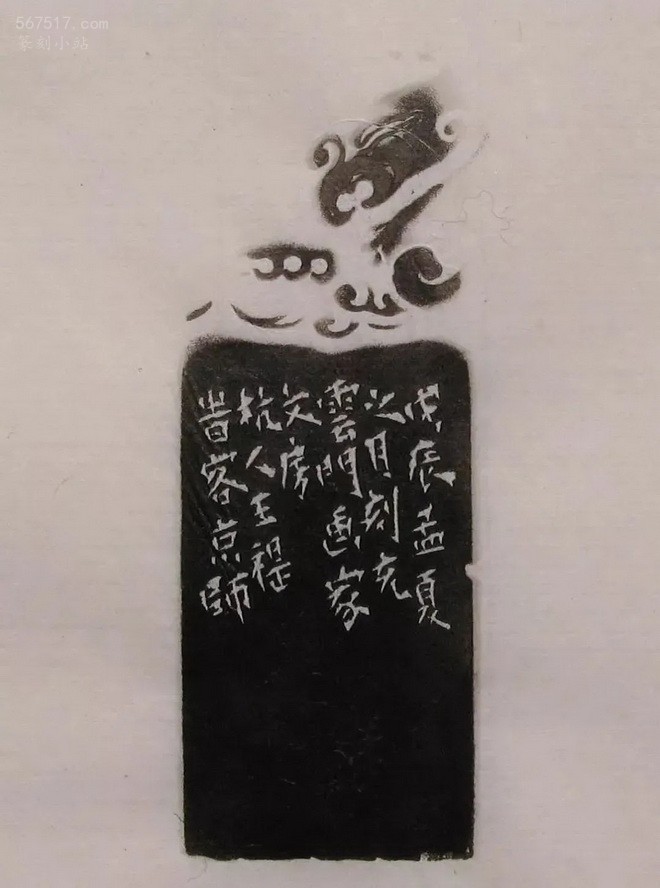 567517.com
篆刻小站
戊辰孟夏
之月刻充
雲門画家
文房
杭人王禔
昔客京師